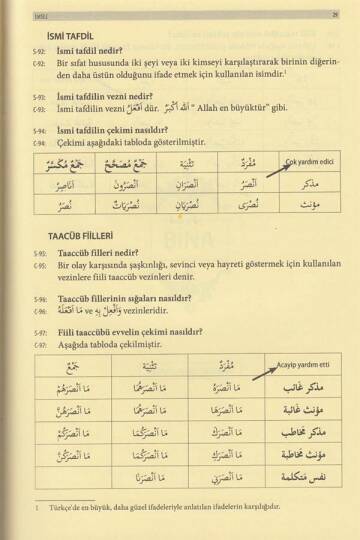 EMSİLE 29
İSMİ TAFDİL
S-92: İsmi tafdil nedir?
C-92: Bir sıfat hususunda iki şeyi veya iki kimseyi karşılaştırarak birinin diğerin-
den daha üstün olduğunu ifade etmek için kullanılan isimdir.¹
S-93: İsmi tafdilin vezni nedir?
C-93: İsmi tafdilin vezni اَفْعَلُ dür. اَللّٰهُ اَكْبَرُ “ Allah en büyüktür” gibi.
S-94: İsmi tafdilin çekimi nasıldır?
C-94: Çekimi aşağıdaki tabloda gösterilmiştir.
جَمْعُ مُكَسَّرٌ جَمْعُ مُصَحَّحٌ تَثْنِيَة مُفْرَدٌ Çok yardım edici
اَنَاصِرُ اَنْصَرُونَ اَنْصَرَانِ اَنْصَرُ مذكر
نُصَرُ نُصْرَيَاتٌ نُصْرَيَانِ نُصْرَى مؤنث
TAACÜB FİİLLERİ
S-95: Taaccüb fiilleri nedir?
C-95: Bir olay karşısında şaşkınlığı, sevinci veya hayreti göstermek için kullanılan
vezinlere fiili taaccüb vezinleri denir.
S-96: Taaccüb fillerinin sığaları nasıldır?
C-96: مَا اَفْعَلَهُ ve وَاَفْعِلْ بِهِ vezinleridir.
S-97: Fiili taaccübü evvelin çekimi nasıldır?
C-97: Aşağıda tabloda çekilmiştir.
جَمْعٌ تَثْنِيَة مُفْرَدٌ Acayip yardım etti
مَا اَنْصَرَهُمْ مَا اَنْصَرَهُمَا مَا اَنْصَرَهُ مذكر غائب
مَا اَنْصَرَهُنَّ مَا اَنْصَرَهُمَا مَا اَنْصَرَهَا مؤنث غائبة
مَا اَنْصَرَكُمْ مَا اَنْصَرَكُمَا مَا اَنْصَرَكَ مذكر مخاطب
مَا اَنْصَرَكُنَّ مَا اَنْصَرَكُمَا مَا اَنْصَرَكِ مؤنث مخاطبة
مَا اَنْصَرَنَا مَا اَنْصَرَنِي نفس متكلمة
1 Türkçe'de en büyük, daha güzel ifadeleriyle anlatılan ifadelerin karşılığıdır.